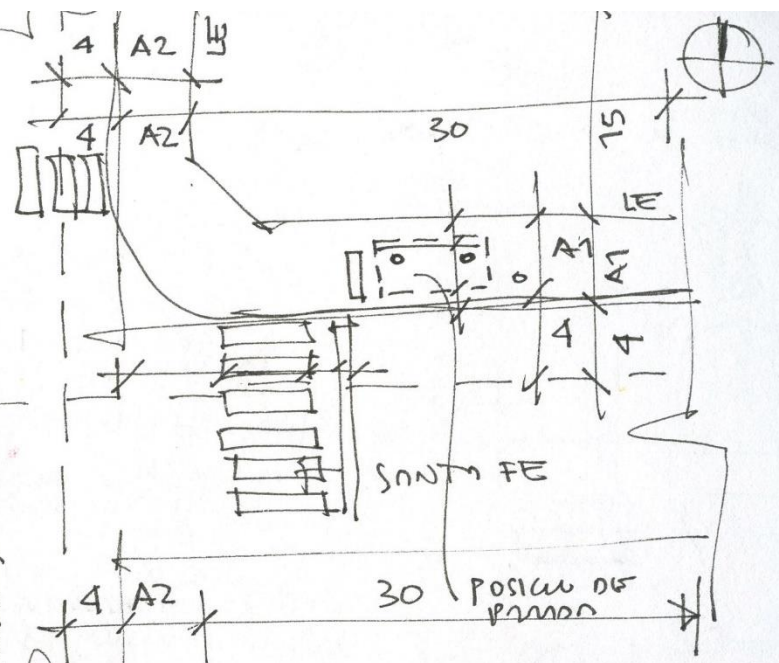 4 A2 LE
4 A2
30
15
LE
A1
A1
4
4
SANTA FE
4 A2
30
POSICION DE
PARADA